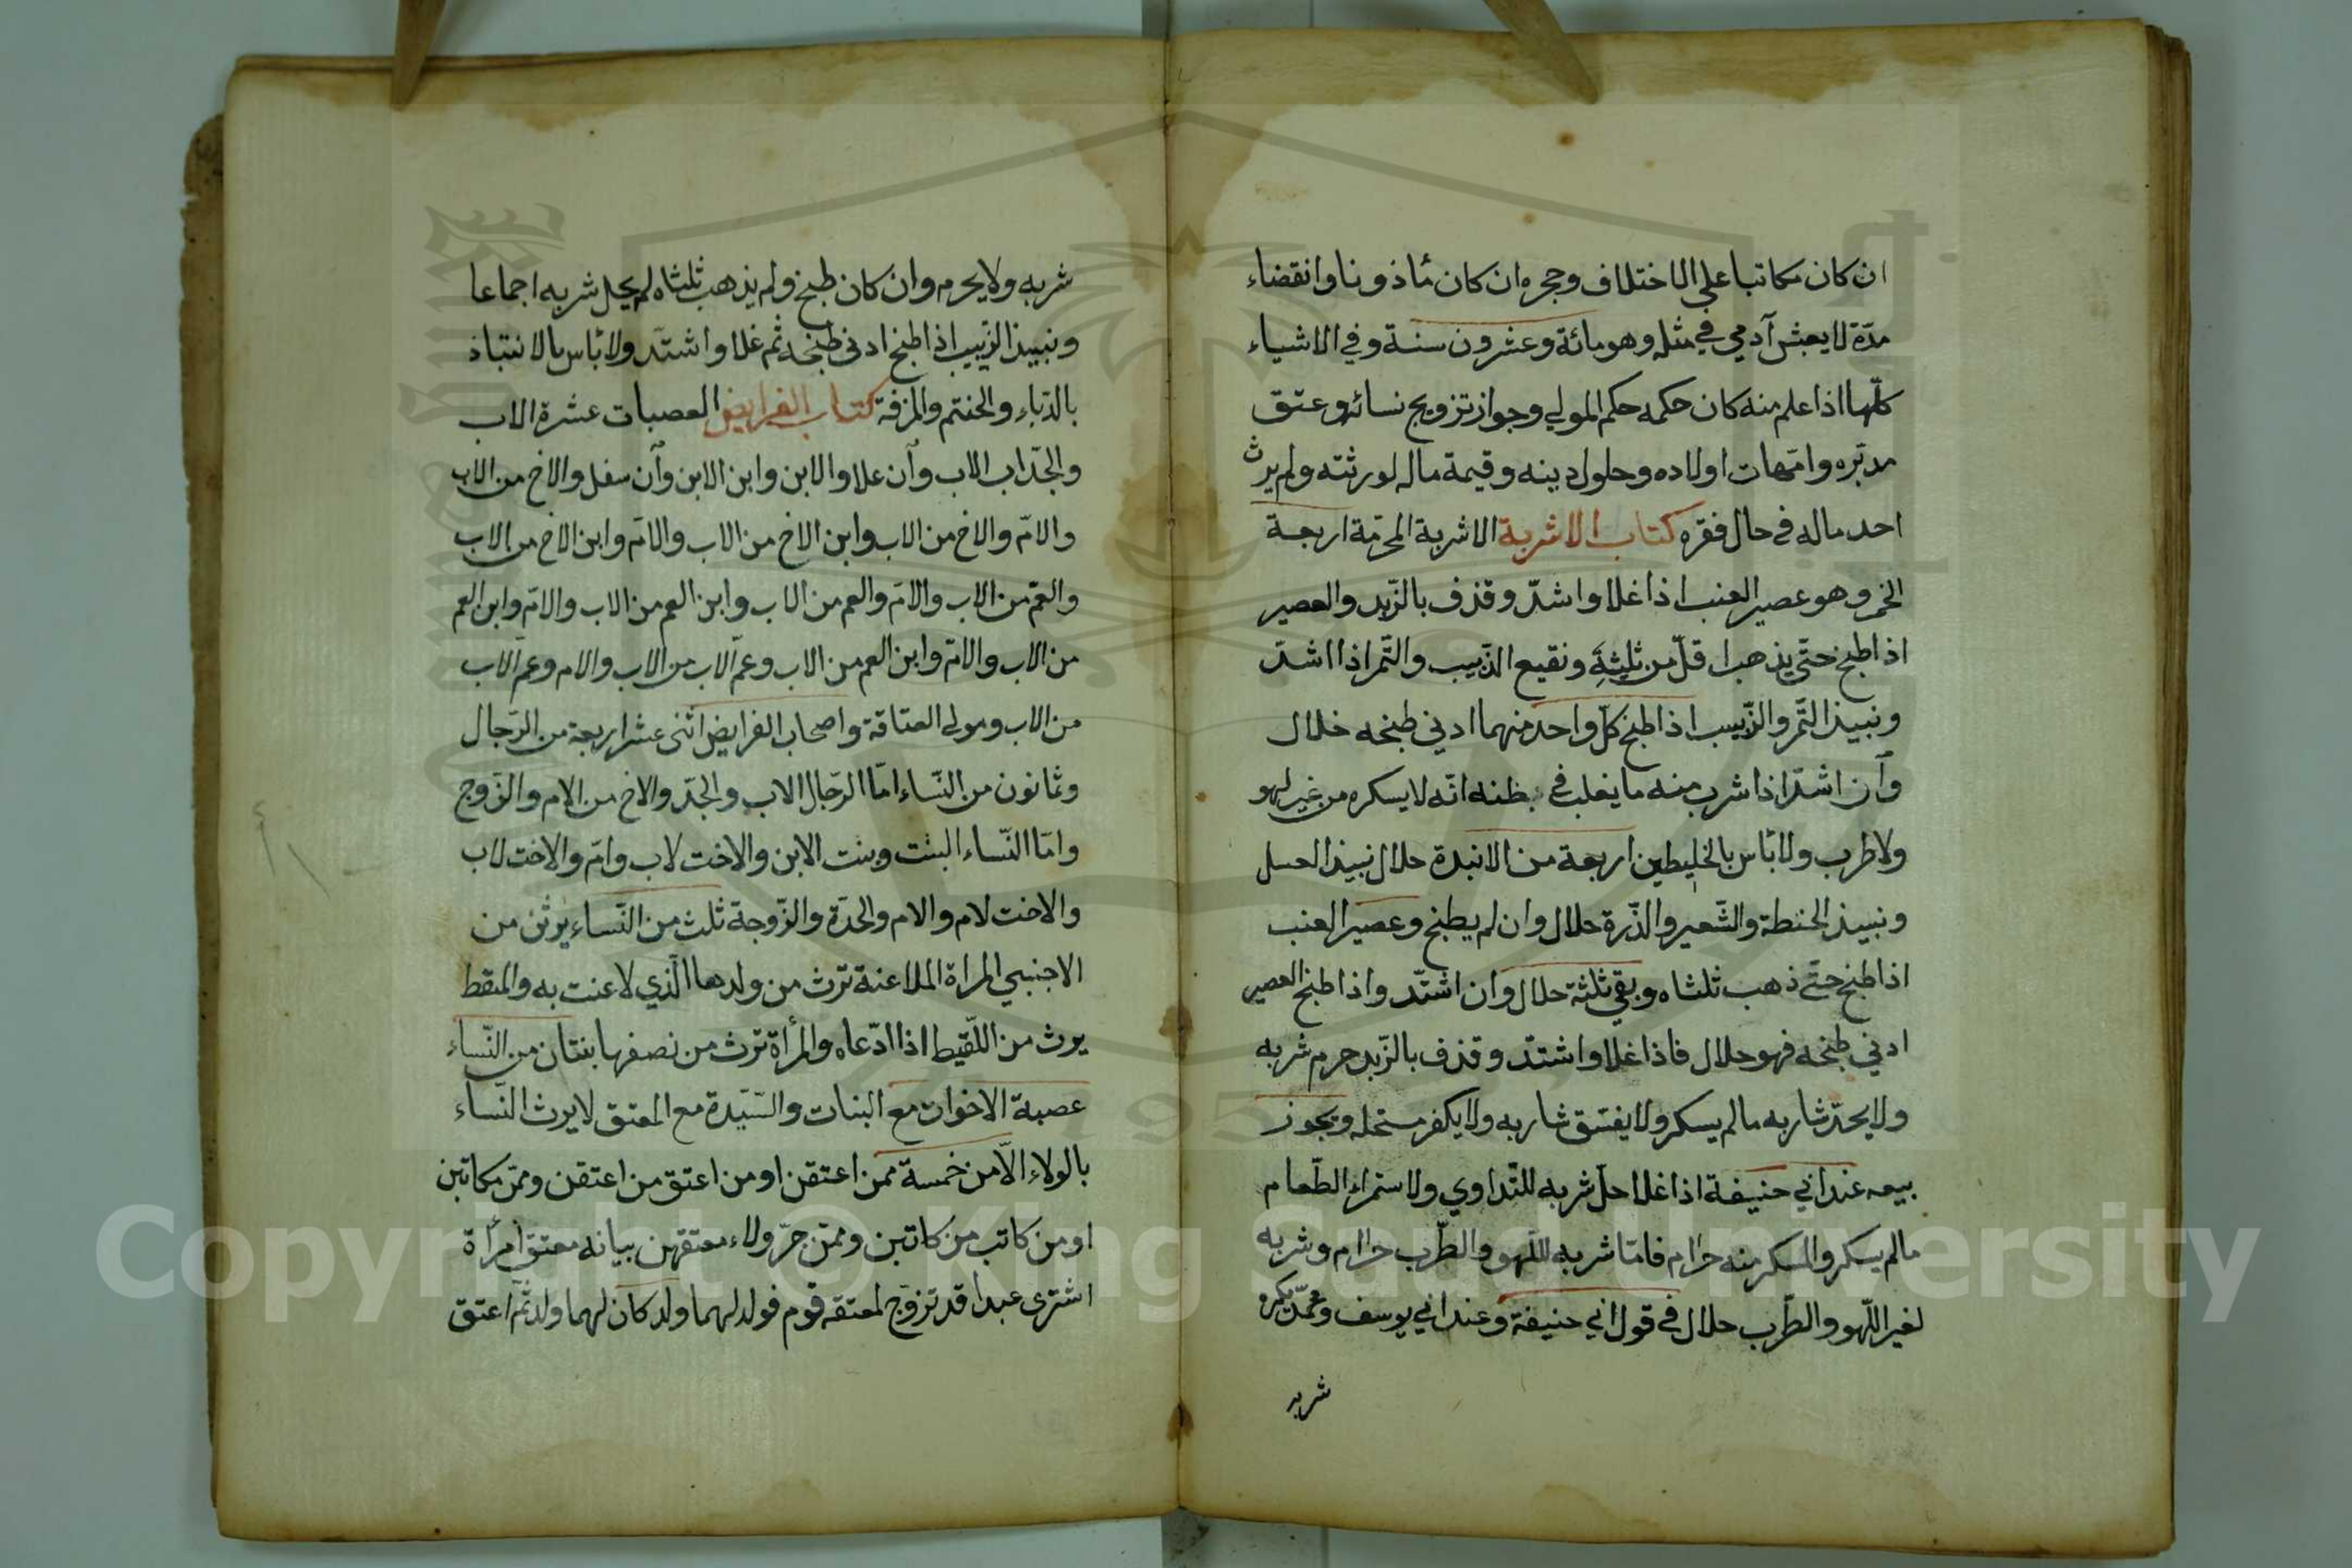 ان كان مكاتبا على الاختلاف وحجره ان كان مأذونا وانقضاء
مدّة لا يعيش آدمي في مثله وهو مائة وعشرون سنة وفي الاشياء
كلّها اذا علم منه كان حكمه حكم المولي وجواز تزويج نسائه وعتق
مدبّره وامّهات اولاده وحلول دينه وقيمة ماله لورثته ولم يرث
احد ماله في حال فقره كتاب الاشربة الاشربة المحرّمة اربعة
الخمر وهو عصير العنب اذا غلا واشدّ وقذف بالزّبد والعصير
اذا طبخ حتّى يذهب اقلّ من ثلثيه ونقيع الزّبيب والتّمر اذا اشدّ
ونبيذ التّمر والزّبيب اذا طبخ كلّ واحد منهما ادني طبخه حلال
وآن اشدّ اذا شرب منه ما يغلب في ظنه انّه لا يسكره من غير لهو
ولا طرب ولا بأس بالخليطين اربعة من الانبذة حلال نبيذ العسل
ونبيذ الحنطة والشّعير والذّرة حلال وان لم يطبخ وعصير العنب
اذا طبخ حتّى ذهب ثلثاه وبقي ثلثة حلال وان اشتدّ واذا طبخ العصير
ادني طبخه فهو حلال فاذا غلا واشتدّ وقذف بالزّبد حرم شربه
ولا يحدّ شاربه ما لم يسكر ولا يفسّق شاربه ولا يكفر مستحله ويجوز
بيعه عند ابي حنيفة اذا غلا حلّ شربه للتّداوي ولاستمراء الطّعام
مالم يسكر والمسكر منه حرام فامّا شربه للّهو والطّرب حرام وشربه
لغير اللّهو والطّرب حلال في قول ابي حنيفة وعند ابي يوسف ومحمّد يكره
شربه
شربه ولا يحرم وان كان طبخ ولم يذهب ثلثاه لم يحل شربه اجماعا
ونبيذ الزّبيب اذا طبخ ادنى طبخه ثم غلا واشتدّ ولا بأس بالانتباذ
بالدّباء والحنتم والمزفة كتاب الفرايض العصبات عشرة الاب
والجدّ اب الاب وآن علا والابن وابن الابن وآن سفل والاخ من الاب
والامّ والاخ من الاب وابن الاخ من الاب والامّ وابن الاخ من الاب
والعمّ من الاب والامّ والعم من الاب وابن العم من الاب والامّ وابن العم
من الاب والامّ وابن العم من الاب وعم الاب من الاب والام وعم الاب
من الاب ومولى العتاقة واصحاب الفرايض اثنى عشر اربعة من الرّجال
وثمانون من النّساء امّا الرّجال الاب والجدّ والاخ من الام والزّوج
وامّا النّساء البنت وبنت الابن والاخت لاب وامّ والاخت لاب
والاخت لام والام والجدّة والزّوجة ثلث من النّساء يرثن من
الاجنبي المراة الملاعنة ترث من ولدها الّذي لاعنت به والملقط
يرث من اللّقيط اذا ادّعاه والمرأة ترث من نصفها بنتان من النّساء
عصبة الاخوات مع البنات والسّيّدة مع المعتق لا يرث النّساء
بالولاء الّا من خمسة ممن اعتقن او من اعتق من اعتقن وممّن كاتبن
او من كاتب من كاتبن وممّن جرّ ولاء معتقهن بيانه معتق امرأة
اشترى عبدا قد تزوّج لمعتقه قوم فولد لهما ولد كان لهما ولد ثمّ اعتق
Copyright © King Saud University